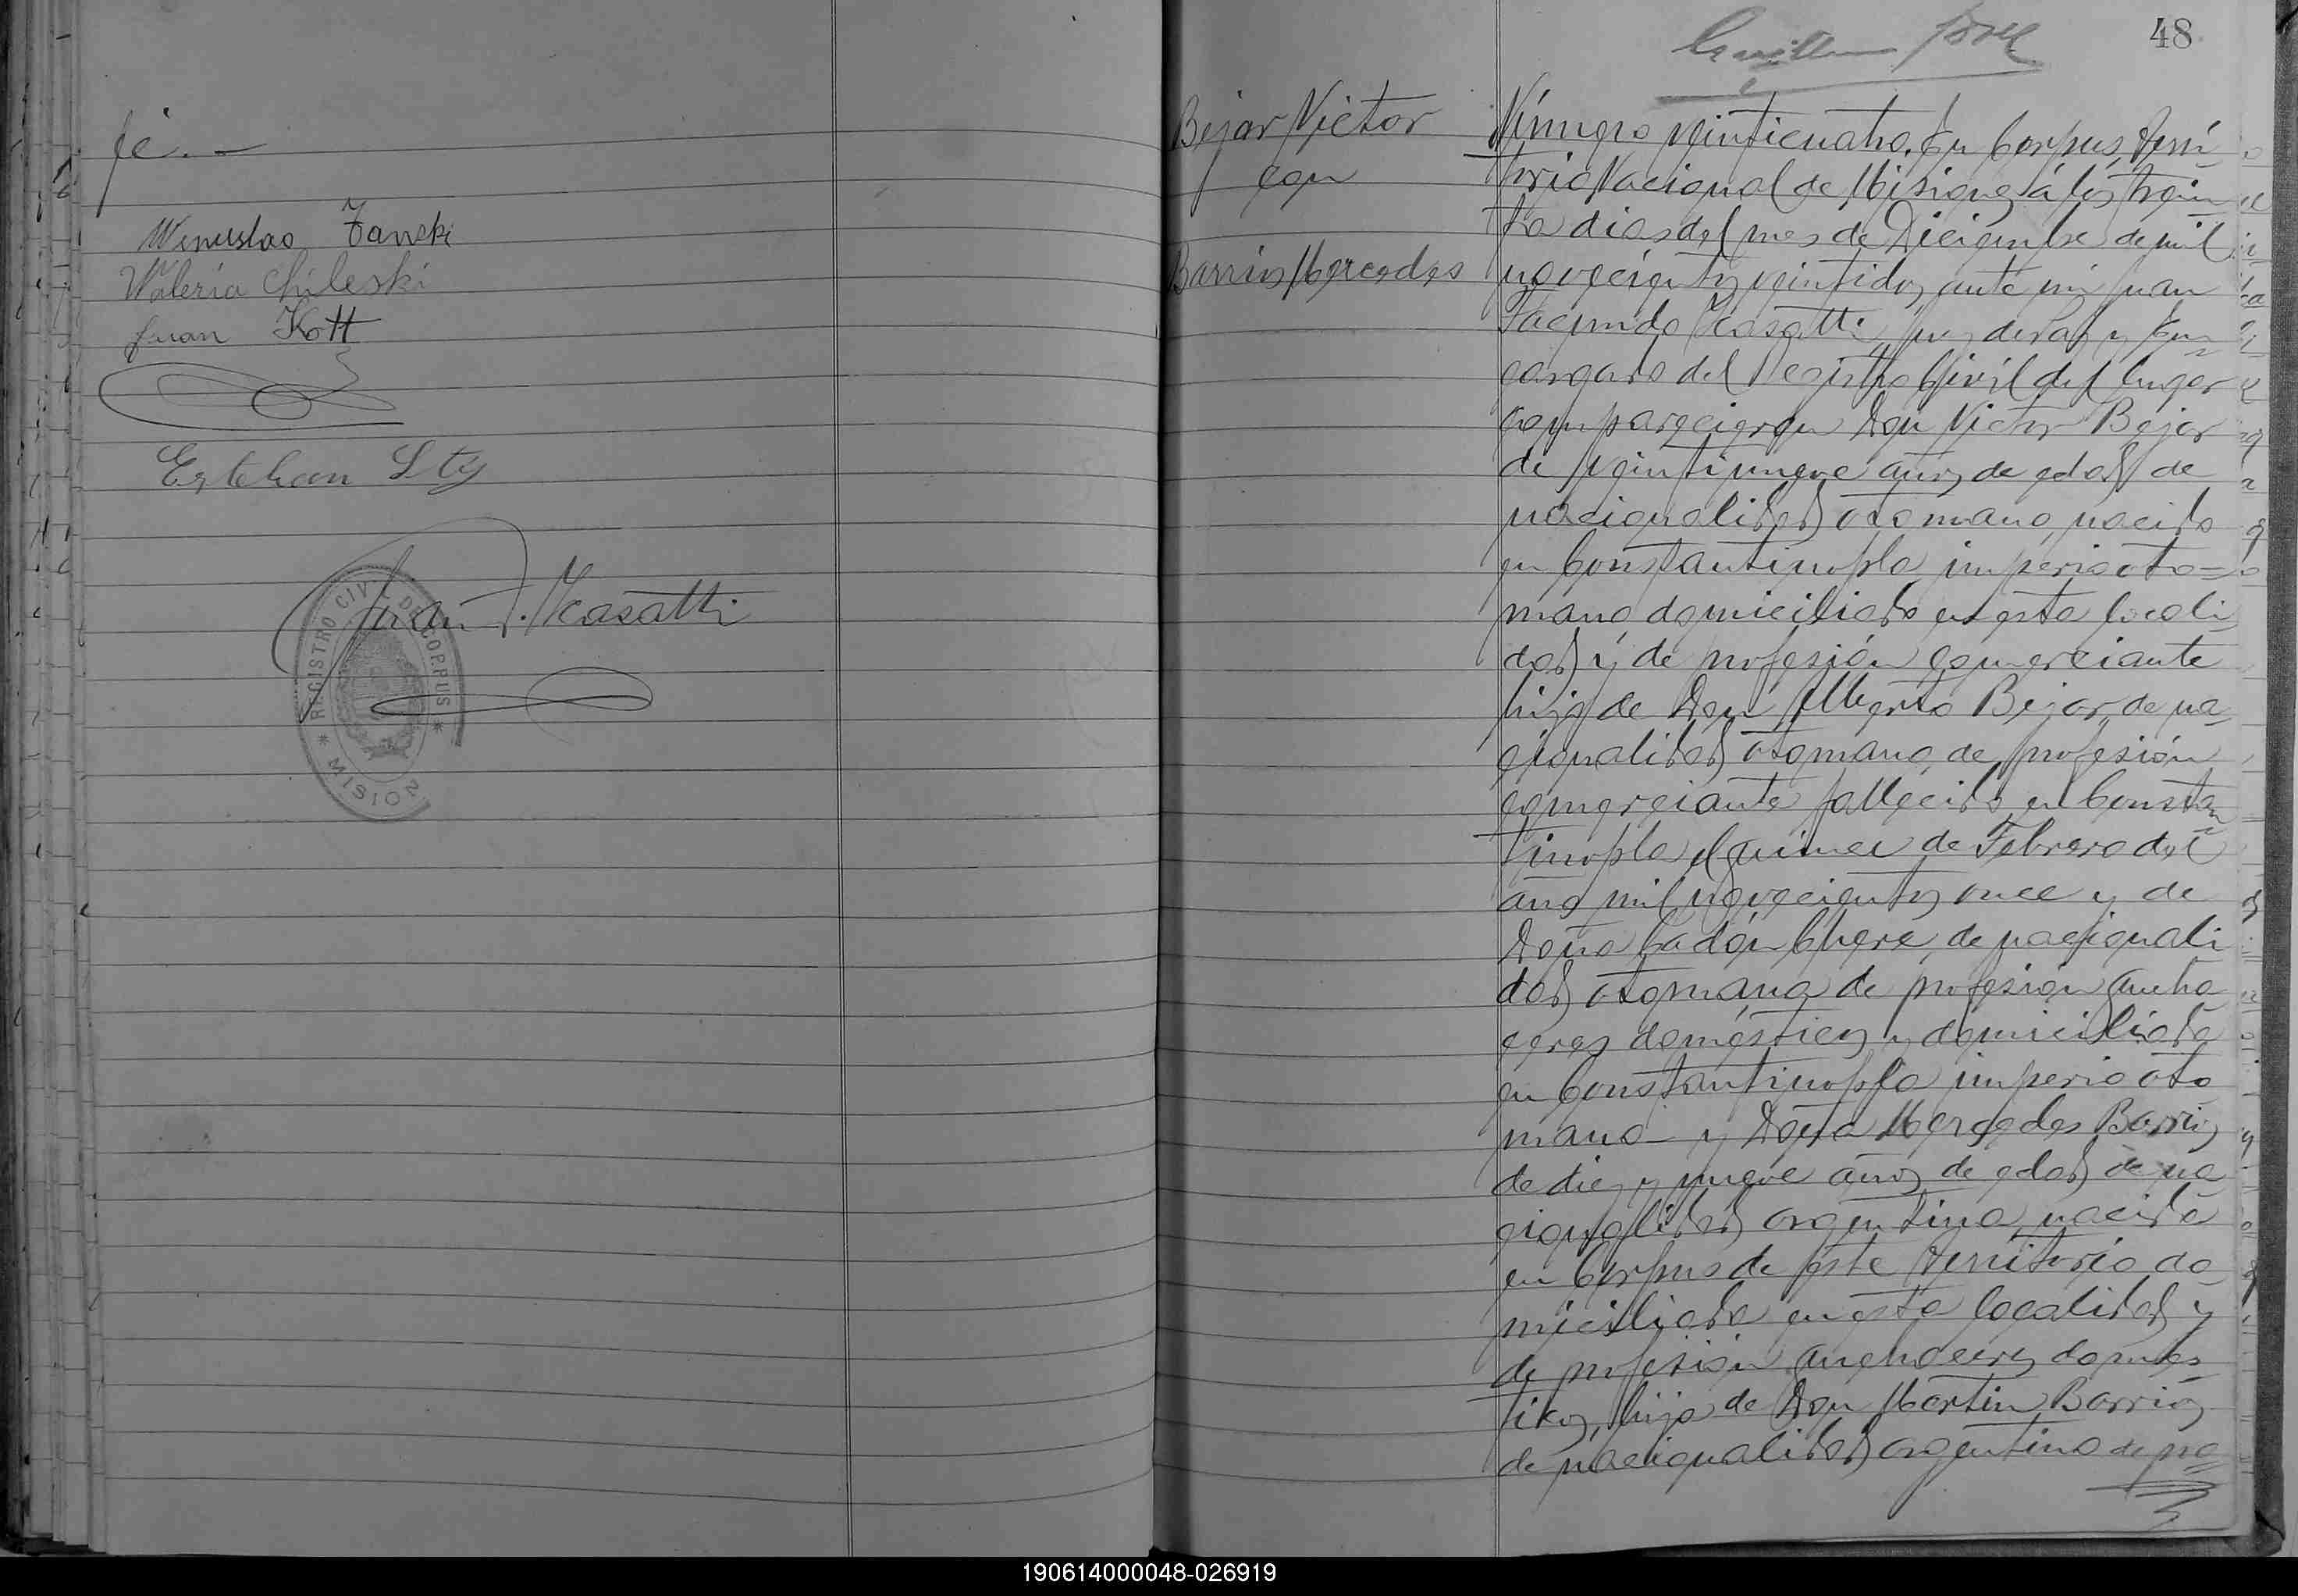 fé.—
Wenceslao Zanski
Waleria Chileski
Juan Kott
Esteban
Juan F. Kasatti
REGISTRO CIVIL DE CORPUS
* MISION
48
Bejar Victor
con
Barrios Mercedes
Número veinticuatro. En Corpus, Terri
torio Nacional de Misiones á los trein
ta dias del mes de Diciembre de mil
novecientos veintidos, ante mi Juan
Facundo Kasatti, Juez de Paz y En
cargado del Registro Civil del lugar
comparecieron Don Victor Bejar
de veintinueve años de edad, de
nacionalidad otomano, nacido
en Constantinopla imperio oto=
mano, domiciliado en esta locali
dad y de profesión comerciante
hijo de Don Alberto Bejar, de na
cionalidad otomano, de profesión
comerciante fallecido en Constan
tinopla el quince de Febrero del
año mil novecientos once y de
Doña de nacionali
dad otomana de profesión queha
ceres domésticos y domiciliada
en Constantinopla imperio oto
mano y Doña Mercedes Barrios
de diez y nueve años de edad, de na
cionalidad argentina, nacida
en Corpus de éste Territorio do
miciliada en esta localidad y
de profesión quehaceres domés
ticos, hija de Don Martin Barrios
de nacionalidad argentino de pro
190614000048-026919